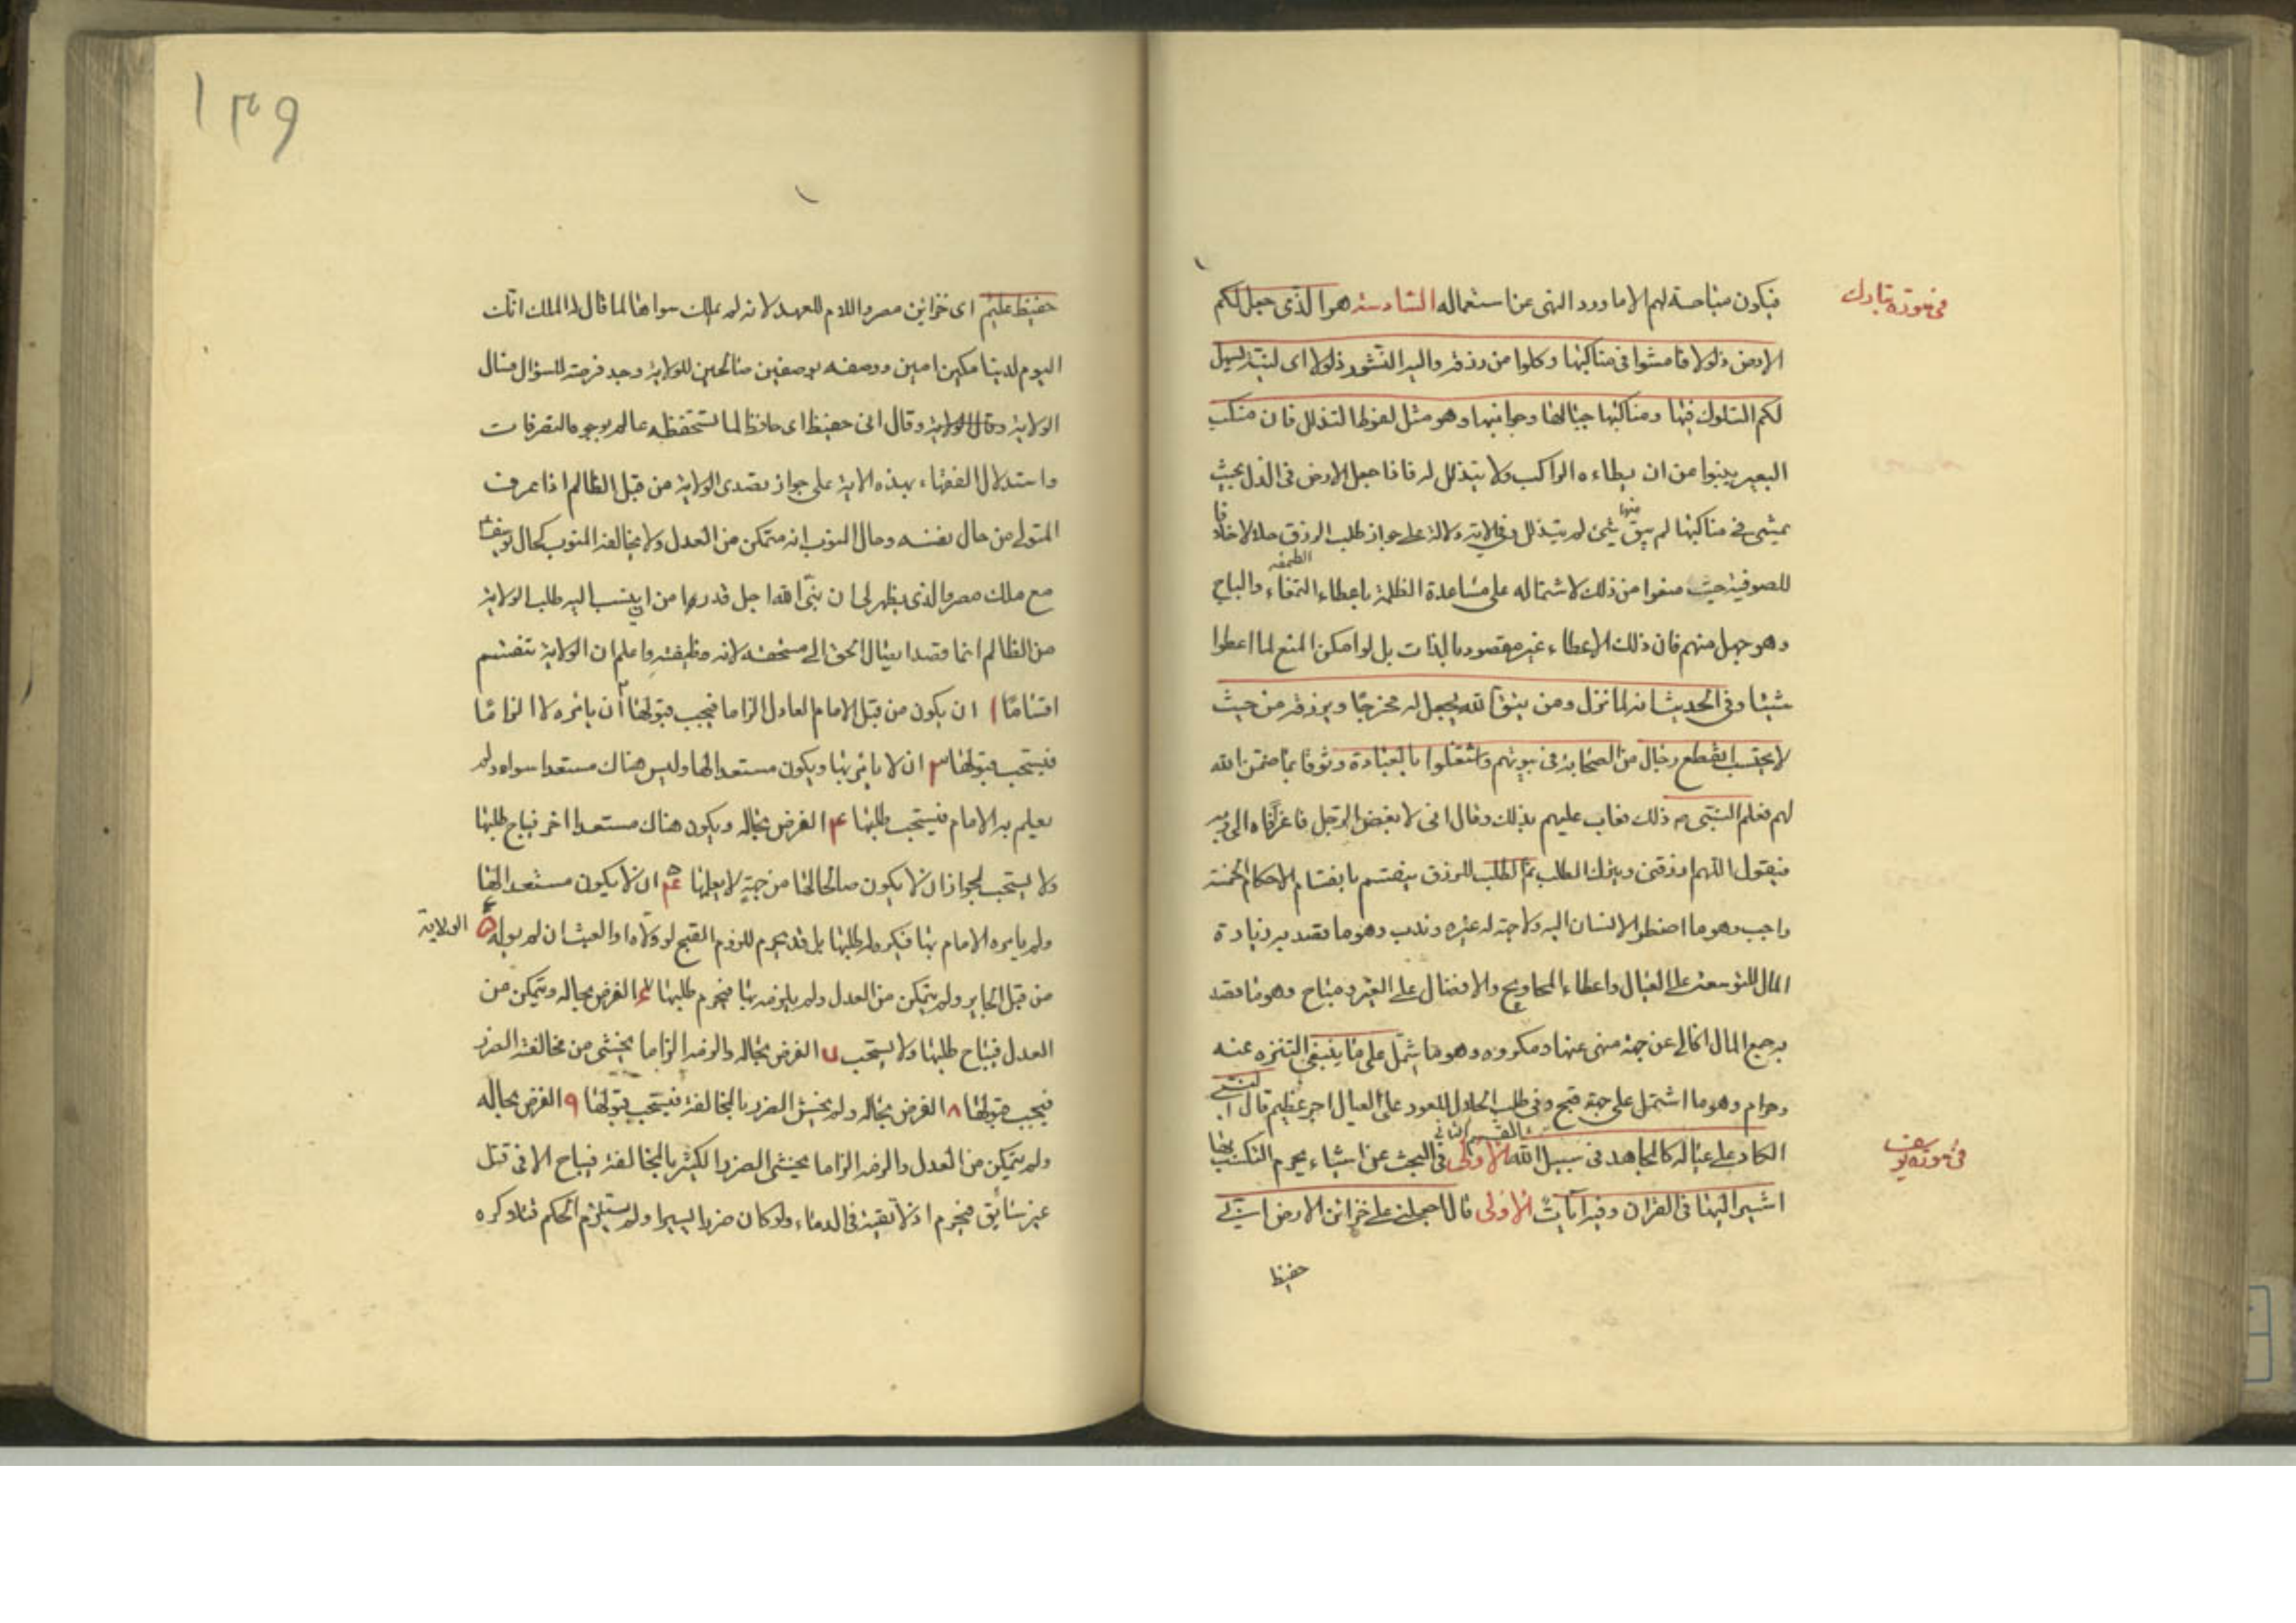 في سورة تبارك
فيكون مباحة لهم الا ما ورد النهى عن استعماله السادسة هو الذى جعل لكم
الارض ذلولا فامشوا فى مناكبها وكلوا من رزقه واليه النشور ذلولا اى لينة يسهل
لكم السلوك فيها ومناكبها جبالها وجوانبها وهو مثل لفرط التذلل فان منكب
البعير ينبوا من ان يطاءه الراكب ولا يتذلل له فاذا جعل الارض فى الذل بحيث
يمشى فى مناكبها لم يبق منها شئ لم يتذلل وفى الاية دلالة على جواز طلب الرزق خلافا
للصوفية حيث منعوا من ذلك لاشتماله على مساعدة الظلمة باعطاء التمغاء والباج
وهو جهل منهم فان ذلك الاعطاء غير مقصود بالذات بل لو امكن المنع لما اعطوا
شيئا وفى الحديث انه لما نزل ومن يتق الله يجعل له مخرجا ويرزقه من حيث
لا يحتسب انقطع رجال من الصحابة فى بيوتهم واشتغلوا بالعبادة وثوقا بما ضمن الله
لهم فعلم النبى ص ذلك فعاب عليهم بذلك وقال انى لابغض الرجل فاغرا فاه الى ربه
فيقول اللهم ارزقنى ويترك الطلب ثم الطلب للرزق ينقسم بانقسام الاحكام الخمسة
واجب وهو ما اضطر الانسان اليه ولا جهة له غيره وندب وهو ما يقصد به زيادة
المال للتوسعة على العيال واعطاء المحاويج والافضال على الغير ومباح وهو ما يقصد
به جمع المال الخالى عن جهة منهى عنها ومكروه وهو ما اشتمل على ما ينبغى التنزه عنه
وحرام وهو ما اشتمل على جهة قبح وفى طلب الحلال للعود على العيال اجر عظيم قال النبى
الكاد على عياله كالمجاهد فى سبيل الله القسم الثانى فى البحث عن اشياء يحرم التكسب بها
في سورة يوسف
اشير اليها فى القران وفيه ايات الاولى قال اجعلنى على خزائن الارض انى
حفيظ
١٣٩
حفيظ عليم اى خزاين مصر واللام للعهد لانه لم يملك سواها لما قال له الملك انك
اليوم لدينا مكين امين ووصفه بوصفين صالحين للولاية وجد فرصة للسؤال فسال
الولاية وقال انى حفيظ اى حافظ لما تستحفظه عالم بوجوه التصرفات
واستدلال الفقهاء بهذه الاية على جواز تصدى الولاية من قبل الظالم اذا عرف
المتولى من حال نفسه وحال المنوب انه متمكن من العدل ولا يخالفه المنوب كحال يوسف
مع ملك مصر والذى يظهر لى ان نبى الله اجل قدرا من ان ينسب اليه طلب الولاية
من الظالم انما قصد ايصال الحق الى مستحقه لانه وظيفته واعلم ان الولاية تنقسم
اقساما ١ ان يكون من قبل الامام العادل الزاما فيجب قبولها ٢ ان يامره لا الزاما
فيستحب قبولها ٣ ان لا يامر بها ويكون مستعدا لها وليس هناك مستعدا سواه ولم
يعلم به الامام فيستحب طلبها ٤ الفرض بحاله ويكون هناك مستعدا اخر فيباح طلبها
ولا يستحب لجواز ان لا يكون صالحا لها من جهة لا يعلمها ٥ ان لا يكون مستعدا لها
ولم يامره الامام بها فيكره له طلبها بل قد يحرم للزوم القبح لو ولاه او العبث ان لم يوله ٥ الولاية
من قبل الجاير ولم يتمكن من العدل ولم يلزمه بها فيحرم طلبها ٦ الفرض بحاله ويتمكن من
العدل فيباح طلبها ولا يستحب ٧ الفرض بحاله والزمه الزاما يخشى من مخالفته الضرر
فيجب قبولها ٨ الفرض بحاله ولم يخش الضرر بالمخالفة فيستحب قبولها ٩ الفرض بحاله
ولم يتمكن من العدل والزمه الزاما يخشى الضرر الكثير بالمخالفة فيباح الا فى قتل
غير سائق فيحرم اذ لا تقية فى الدماء ولو كان ضررا يسيرا ولم يستلزم الحكم قتلا وكره